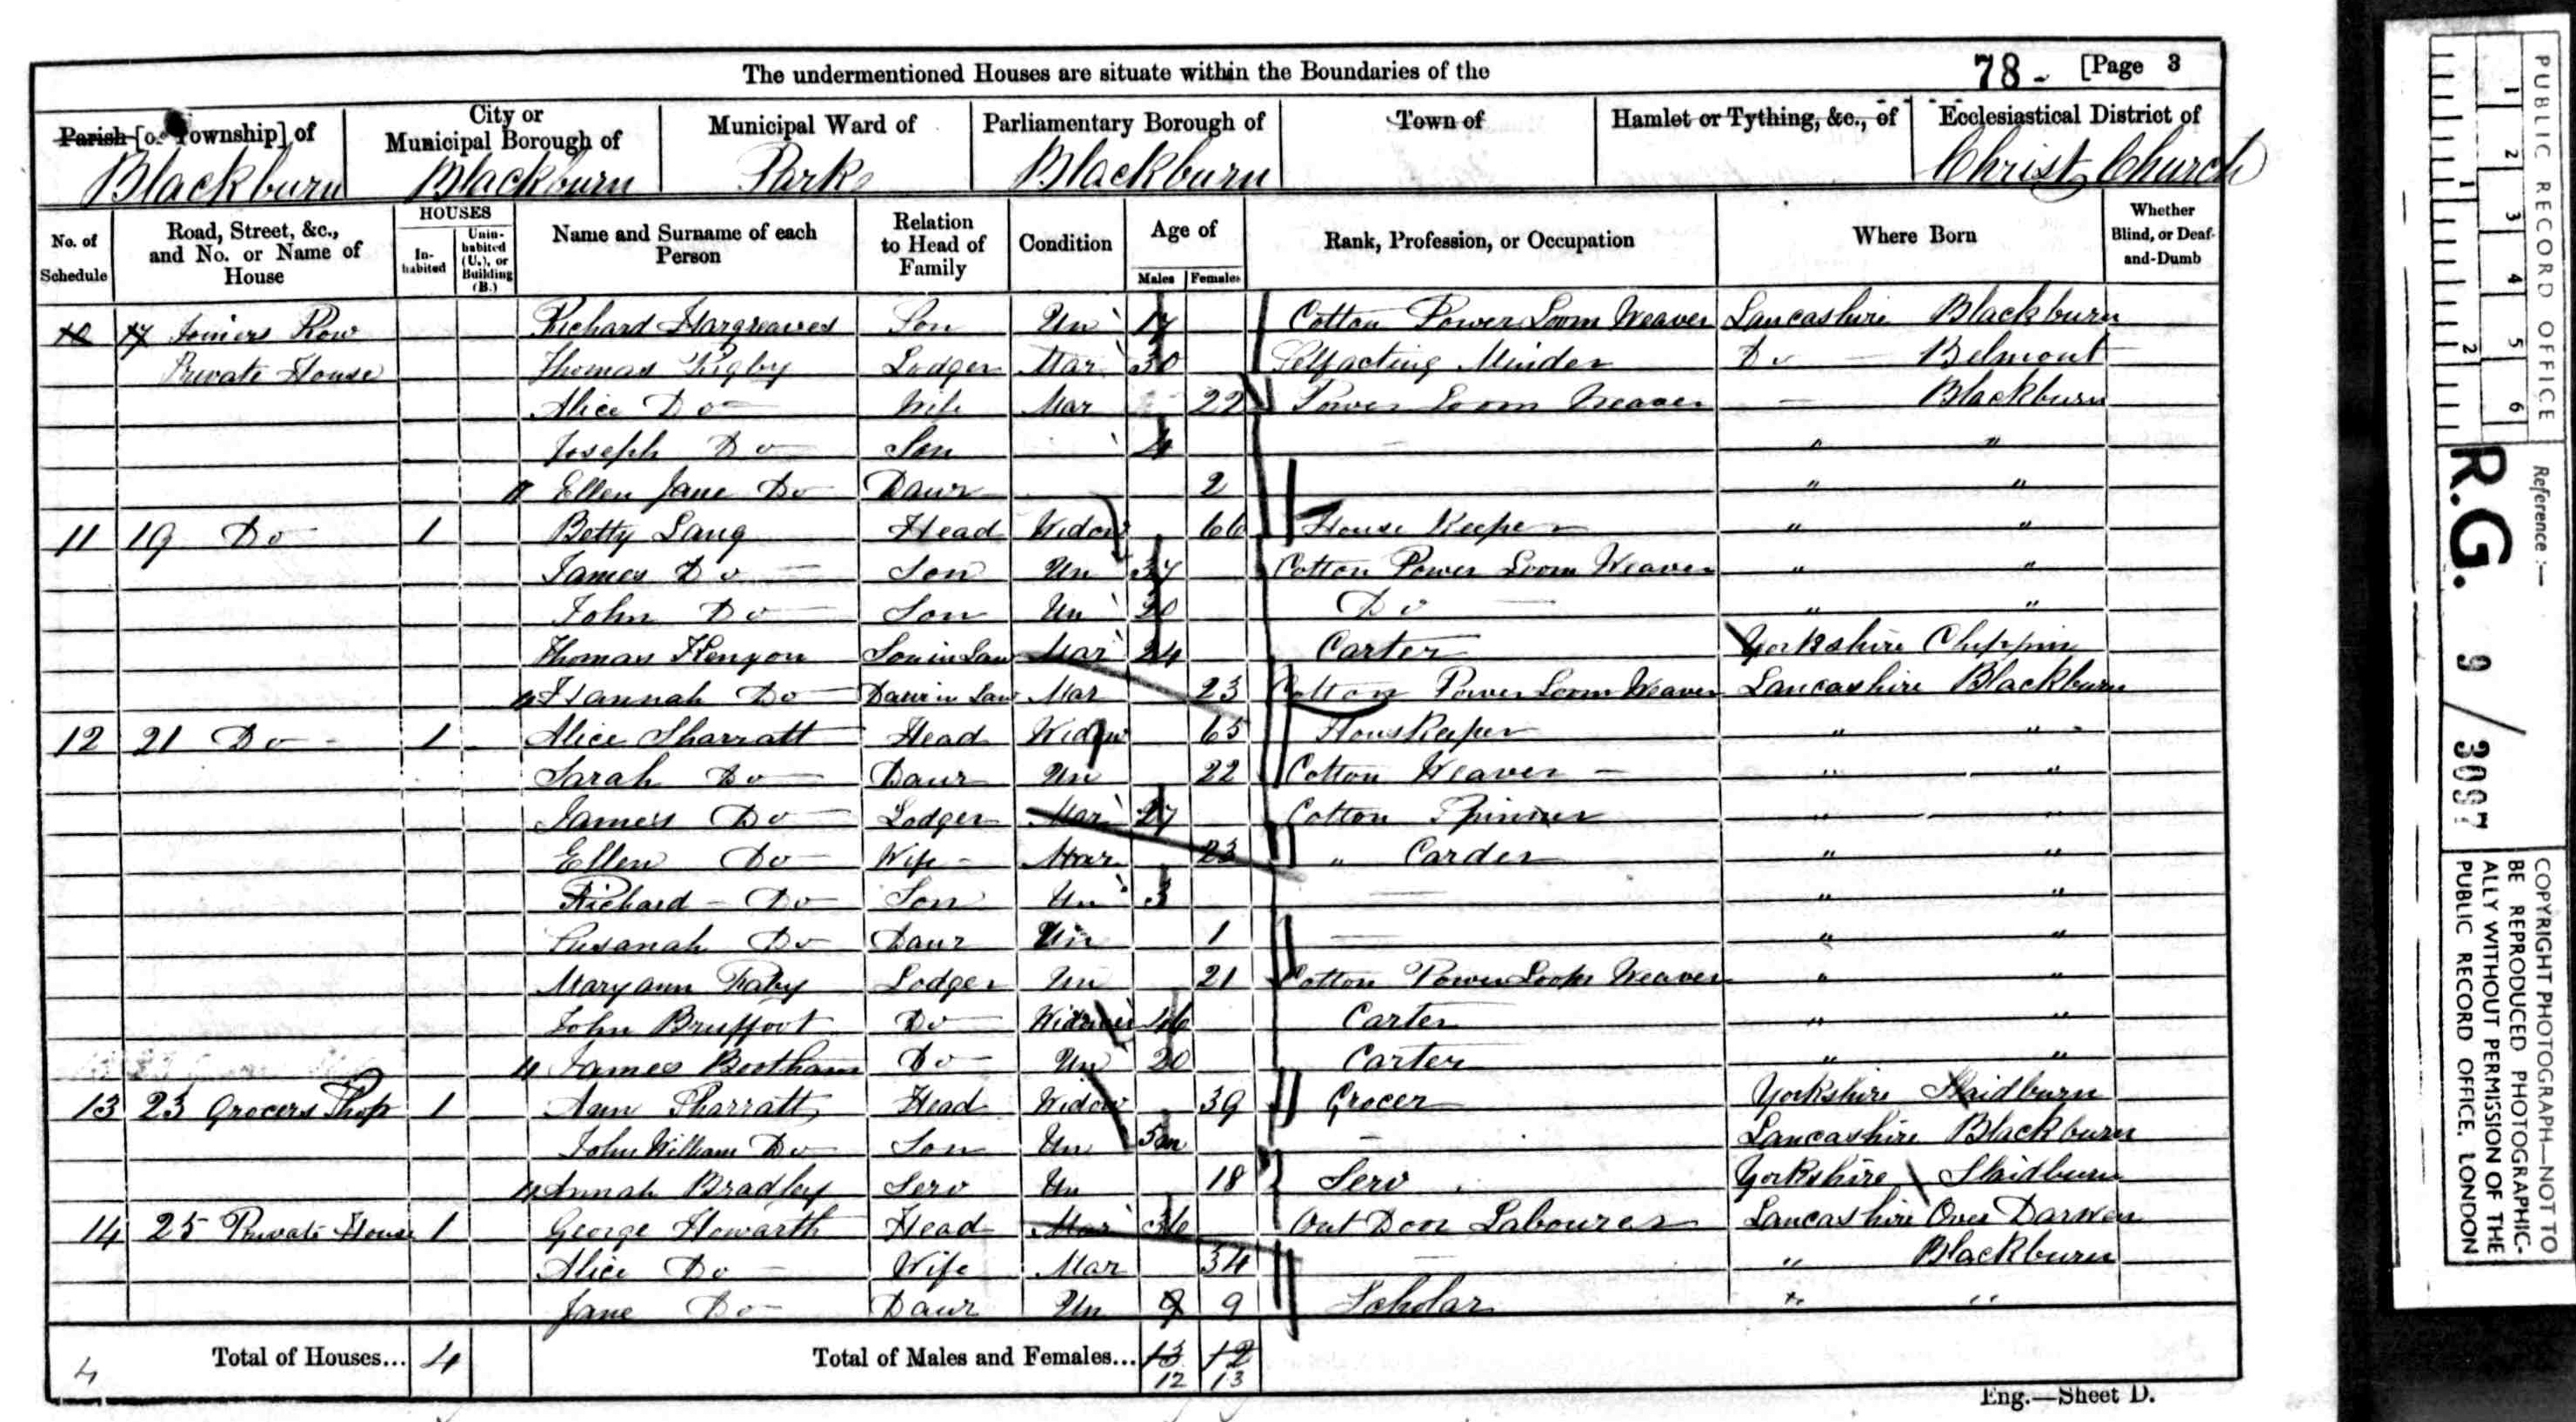 The undermentioned Houses are situate within the Boundaries of the
78 - [Page 3
Parish [or Township] of
Blackburn
City or Municipal Borough of
Blackburn
Municipal Ward of
Park
Parliamentary Borough of
Blackburn
Town of
Hamlet or Tything, &c., of
Ecclesiastical District of
Christ Church
No. of Schedule
Road, Street, &c., and No. or Name of House
HOUSES
In-habited
Unin-habited (U.), or Building (B.)
Name and Surname of each Person
Relation to Head of Family
Condition
Age of
Males Females
Rank, Profession, or Occupation
Where Born
Whether Blind, or Deaf-and-Dumb
10 17 Joiners Row Richard Hargreaves Son Un 17 Cotton Power Loom Weaver Lancashire Blackburn
Private House Thomas Rigby Lodger Mar 30 Selfacting Minder Do — Belmont
Alice Do Wife Mar 22 Power Loom Weaver — Blackburn
Joseph Do Son 4 — " "
Ellen Jane Do Daur 2 " "
11 19 Do 1 Betty Lang Head Widow 66 House Keeper " "
James Do Son Un 37 Cotton Power Loom Weaver " "
John Do Son Un 20 Do " "
Thomas Kenyon Son in Law Mar 24 Carter Yorkshire Chippin
Hannah Do Daur in Law Mar 23 Cotton Power Loom Weaver Lancashire Blackburn
12 21 Do 1 Alice Sharratt Head Widow 65 HousKeeper " "
Sarah Do Daur Un 22 Cotton Weaver — " "
James Do Lodger Mar 27 Cotton Spinner " "
Ellen Do Wife Mar 23 " Carder " "
Richard Do Son Un 3 — " "
Susanah Do Daur Un 1 — " "
Mary ann Lodger Un 21 Cotton Power Loom Weaver " "
John Bruffoot Do Widower 46 Carter " "
James Do Un 20 Carter " "
13 23 Grocers Shop 1 Ann Sharratt Head Widow 39 Grocer Yorkshire Slaidburn
John William Do Son Un 5m — Lancashire Blackburn
Annah Bradley Serv Un 18 Serv Yorkshire Slaidburn
14 25 Private House 1 George Howarth Head Mar 36 Out Door Labourer Lancashire Over Darwen
Alice Do Wife Mar 34 — " Blackburn
Jane Do Daur Un 9 9 Scholar " "
4 Total of Houses... 4 Total of Males and Females... 13 12
12 13
Eng.—Sheet D.
PUBLIC RECORD OFFICE
1 2 3 4 5 6
1 2
Reference :—
R.G. 9 / 3097
COPYRIGHT PHOTOGRAPH—NOT TO BE REPRODUCED PHOTOGRAPHIC-ALLY WITHOUT PERMISSION OF THE PUBLIC RECORD OFFICE, LONDON